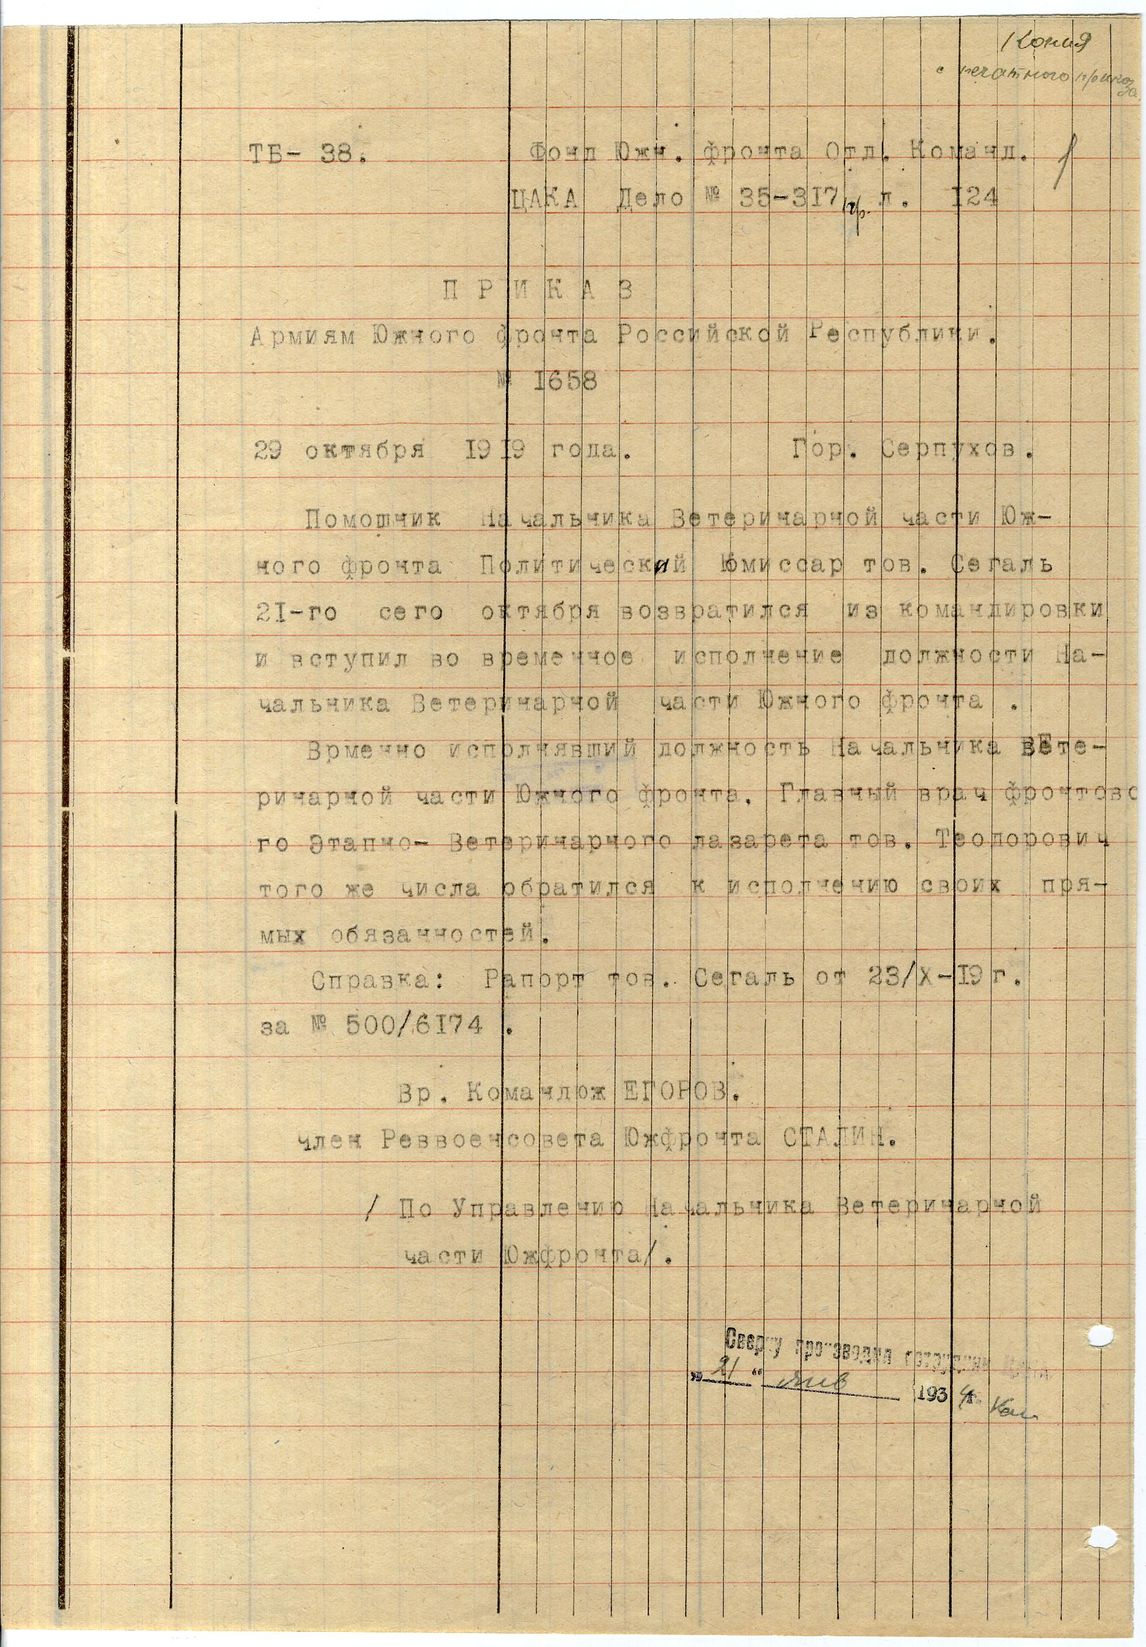 Копия
с печатного приказа
ТБ- 38. Фонд Южн. фронта Отд. Команд.
ЦАКА Дело № 35-317 л. I24
П Р И К А З
Армиям Южного фронта Российской Республики.
№ I658
29 октября I9I9 года. Гор. Серпухов.
Помощник Начальника Ветеринарной части Юж-
ного фронта Политический Комиссар тов. Сегаль
2I-го сего октября возвратился из командировки
и вступил во временное исполнение должности На-
чальника Ветеринарной части Южного фронта .
Врменно исполнявший должность Начальника вЕте-
ринарной части Южного фронта. Главный врач фронтово
го Этапно- Ветеринарного лазарета тов. Теодорович
того же числа обратился к исполнению своих пря-
мых обязанностей.
Справка: Рапорт тов. Сегаль от 23/X-I9 г.
за № 500/6I74 .
Вр. Командюж ЕГОРОВ.
член Реввоенсовета Южфронта СТАЛИН.
/ По Управлению Начальника Ветеринарной
части Южфронта/.
Сверку производил сотрудник
„21“ янв 1934г.